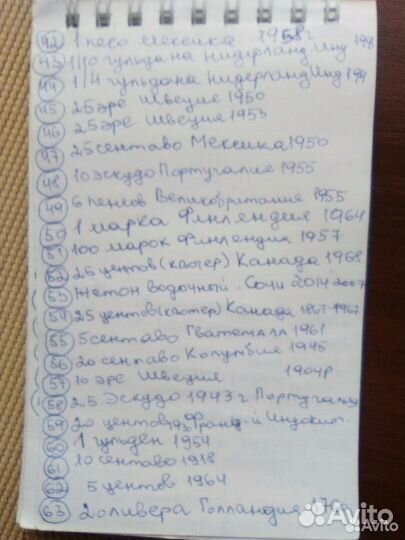 42 1 песо Мексика 1958г
43 1/10 гульдена Нидерланд.Инд 194
44 1/4 гульдена Нидерланд Инд 194
45 25 эре Швеция 1950
46 25 эре Швеция 1953
47 25 сентаво Мексика 1950
48 10 эскудо Португалия 1955
49 6 пенсов Великобритания 1955
50 1 марка Финлендия 1964
51 100 марок Финлендия 1957
52 25 центов (квотер) Канада 1968
53 Жетон водочный Сочи 2014 2007
54 25 центов (квотер) Канада 1867-1967
55 5 сентаво Гватемала 1961
56 20 сентаво Колумбия 1945
57 10 эре Швеция 1904г
58 2.5 Эскудо 1943 г Португалия
59 20 центов Франц-й Индокит.
60 1 гульден 1954
61 10 сентаво 1918
62 5 центов 1964
63 2 оливера Голландия
Avito
Avito